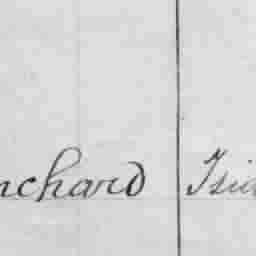 nchard Isid